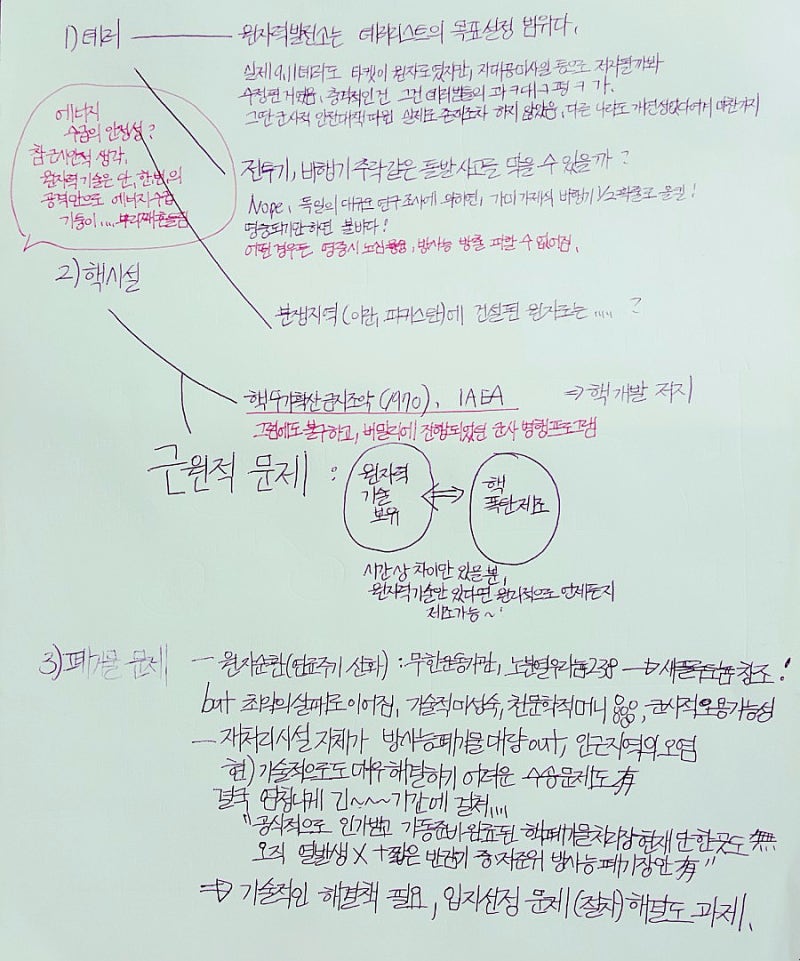 1) 테러 — 원자력발전소는 테러리스트의 목표설정 범위다.
실제 9.11 테러도 타켓이 원자로였지만, 지대공미사일 등으로 저지될까봐
수정된 거였음, 충격적인 건 그건 테러범들의 과ㅋ대ㅋ평ㅋ가.
그딴 군사적 안전대책 따윈 실제로 존재조차 하지 않았음, 다른 나라도 개연성있다 여겨 마찬가지
에너지
수급의 안정성?
참 근시안적 생각,
원자력 기술은 단, 한번의
공격만으로 에너지수급
기둥이.... 뿌리째흔들림
전투기, 비행기 추락같은 돌발사고를 막을 수 있을까?
Nope, 독일의 대규모 연구조사에 의하면, 가미가제식 비행기 1/2확률로 올킬!
명중되기만 하면 불바다!
어떤 경우든 명중시 노심용융, 방사능 방출 피할 수 없어짐.
2) 핵시설
분쟁지역(이란, 파키스탄)에 건설된 원자로는..... ?
핵무기확산금지조약(1970), IAEA ⇒ 핵개발 저지
그럼에도 불구하고, 비밀리에 진행되었던 군사 병행프로그램
근원적 문제 :
원자력
기술
보유
⇔
핵
폭탄제조
시간상 차이만 있을 뿐,
원자력기술만 있다면 원칙적으로 언제든지
제조가능~
3) 폐기물 문제 — 원자순환(연료주기 신화) : 무한운동기관, 노분열우라늄238 → 새플루토늄 창조!
but 최악의실패로 이어짐, 기술적미성숙, 천문학적머니, 군사적오용가능성
— 재처리시설 자체가 방사능폐기물 대량out, 인근지역의 오염
현) 기술적으로도 매우 해결하기 어려운 수송문제도 有
결국 엄청나게 긴~~~기간에 걸쳐....
"공식적으로 인가받고 가동준비 완료된 핵폐기물처리장 현재 단 한곳도 無
오직 열발생 X + 짧은 반감기 중·저준위 방사능 폐기장만 有"
⇒ 기술적인 해결책 필요, 입지선정 문제(절차) 해결도 과제.